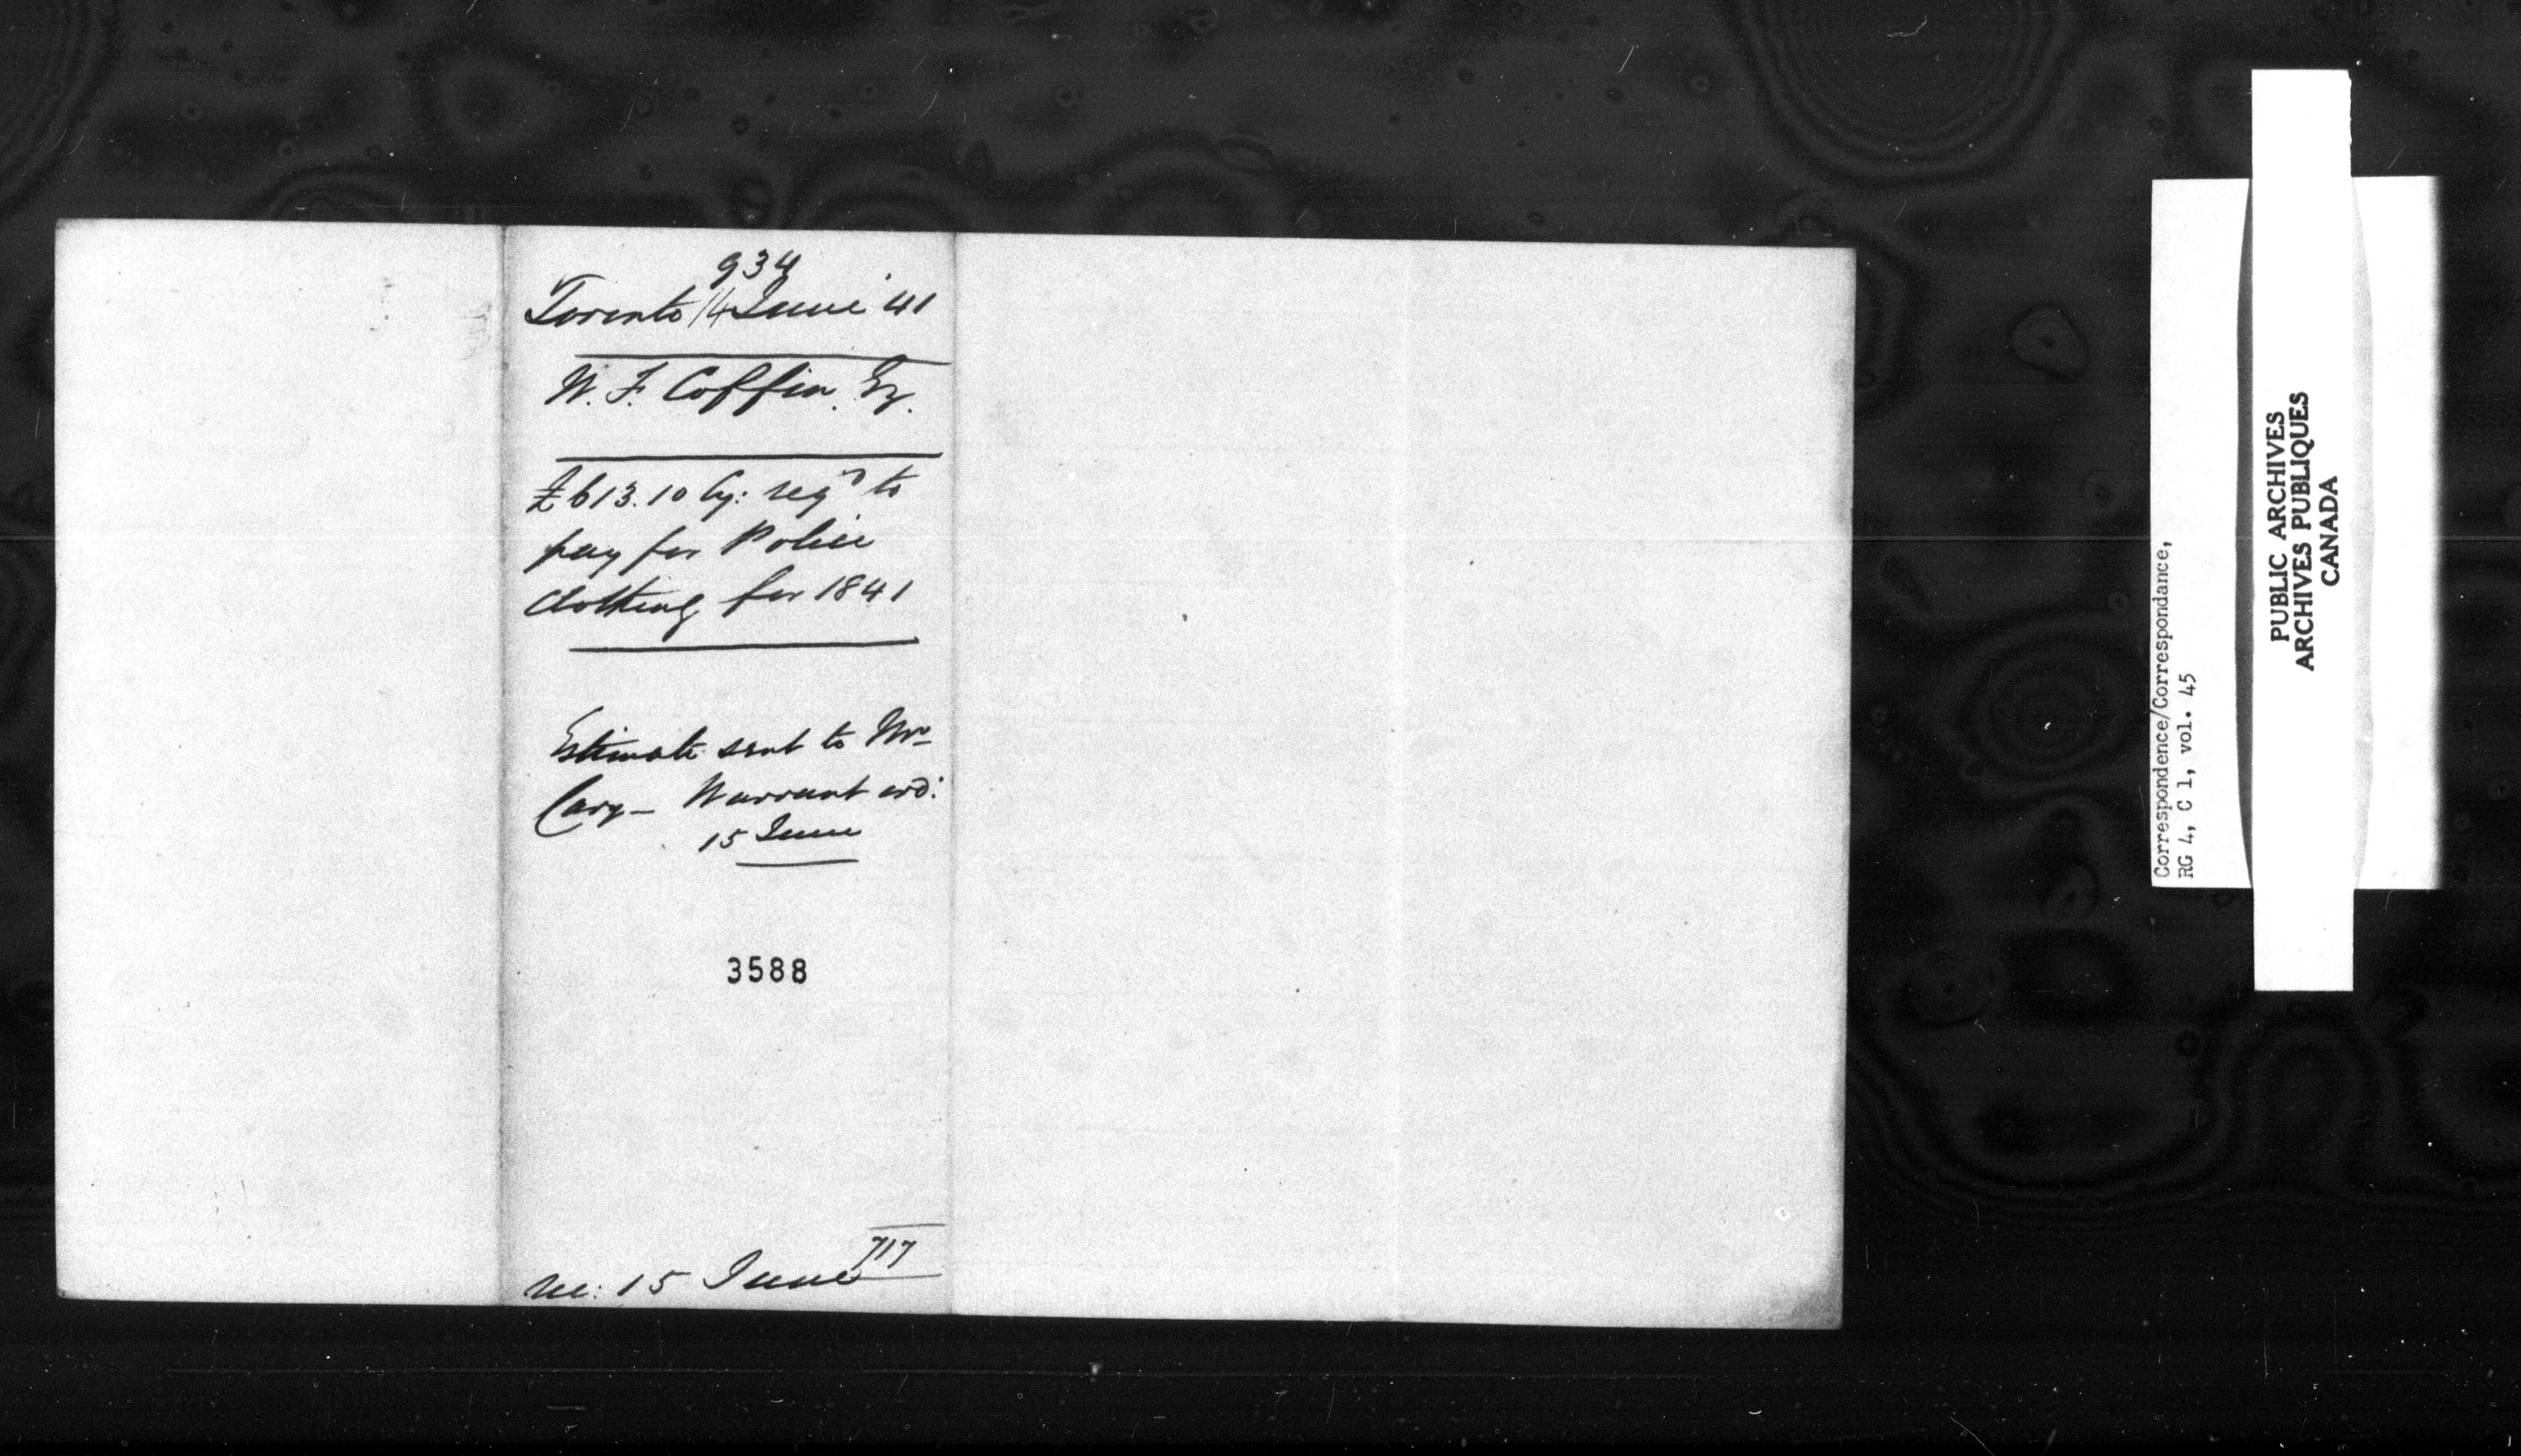 934
Toronto 14 June 41
W. F. Coffin. Esq.
£613.10 Cy: reqd to
pay for Police
Clothing for 1841
Estimate sent to Mr
Cary – Warrant ord:
15 June
3588
717
rec: 15 June
Correspondence/Correspondance,
RG 4, C 1, vol. 45
PUBLIC ARCHIVES
ARCHIVES PUBLIQUES
CANADA